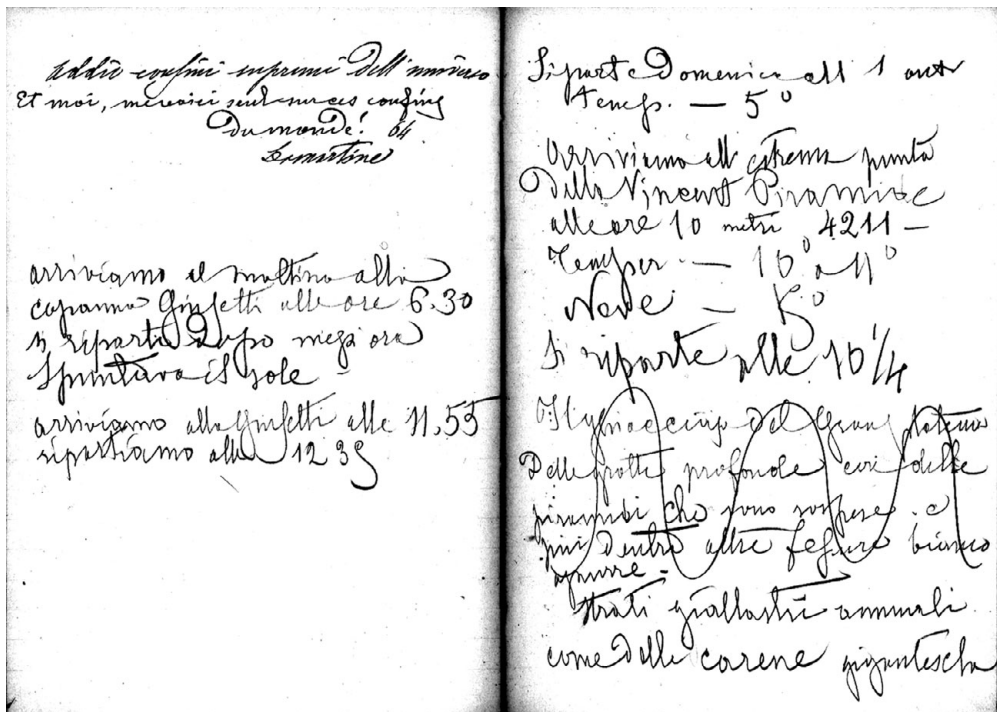 addio confini supremi dell'universo
Et moi, me voici seul sur ces confins
du monde! 64
Lamartine
arriviamo al mattino alla
capanna Gnifetti alle ore 6.30
si riparte dopo mezz ora
Spuntava il sole
arriviamo alla Gnifetti alle 11.55
ripartiamo alle 12 35
Si parte Domenica all 1 ant
Temp. — 5°
Arriviamo all estrema punta
della Vincent Piramide
alle ore 10 metri 4211 —
Temper. — 10° a 11°
Neve — 5°
Si riparte alle 10 1/4
Il ghiacciaio del
Delle grotte profonde con delle
piramidi che sono sospese. e
più dentro altre fessure bianco
azzurre =
Strati giallastri annuali
come delle carene gigantesche